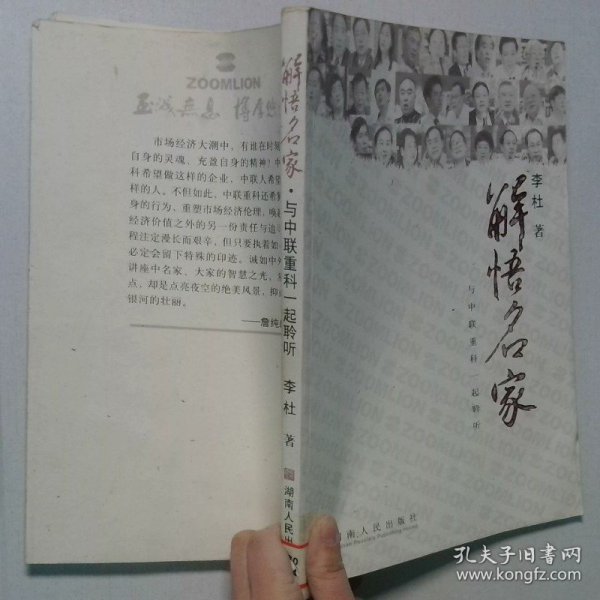 ZOOMLION
至诚无息 博厚悠
市场经济大潮中,有谁在时刻
自身的灵魂、充盈自身的精神!中
科希望做这样的企业,中联人希望
样的人。不但如此,中联重科还希
身的行为、重塑市场经济伦理,唤
经济价值之外的另一份责任与追
程注定漫长而艰辛,但只要执着如
必定会留下特殊的印迹。诚如中外
讲座中名家、大家的智慧之光,
点,却是点亮夜空的绝美风景,抑
银河的壮丽。
——詹纯
解悟名家·与中联重科一起聆听
李杜 著
湖南人民出
李杜 著
解悟名家
与中联重科一起聆听
南人民出版社
孔夫子旧书网
www.kongfz.com